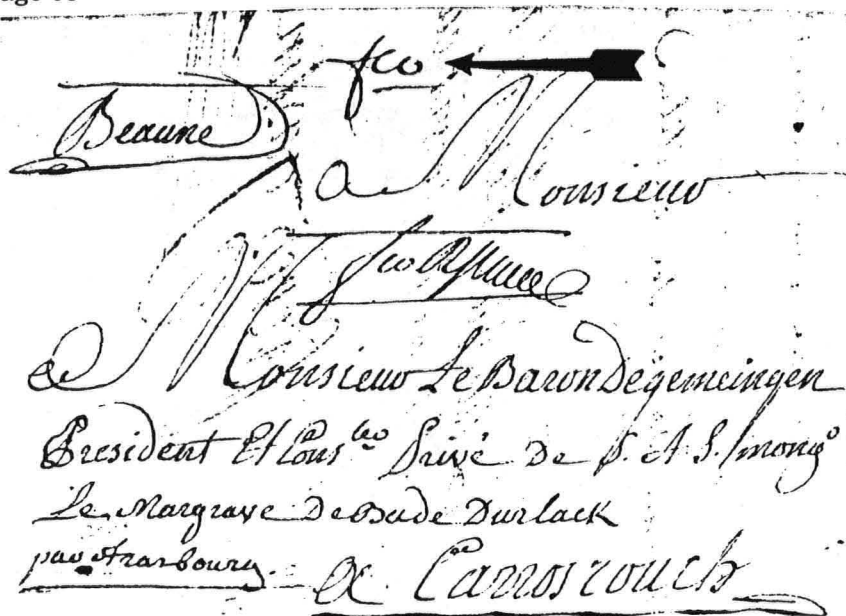 fco
Beaune
a Monsieur
fco
a Monsieur Le Baron Degemeingen
President Et Cons.er Privé De S. A S. mong.r
Le Margrave De Bade Durlack
par Strasbourg. a Carrosrouck